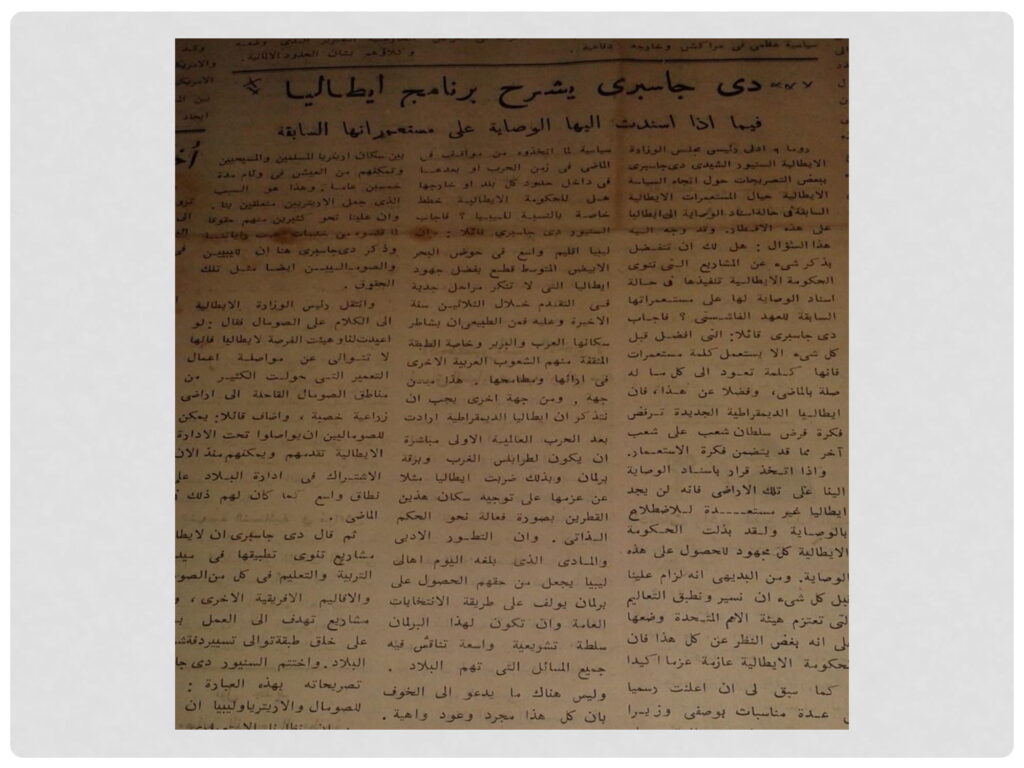 سياسية عظمى فى مراكش وخارجه دفاعية.
دى جاسبرى يشرح برنامج ايطاليا
فيما اذا اسندت اليها الوصاية على مستعمراتها السابقة
روما ٩ ادلى رئيس مجلس الوزارة
الايطالية السنيور الشيدى دى جاسبرى
ببعض التصريحات حول اتجاه السياسة
الايطالية حيال المستعمرات الايطالية
السابقة فى حالة اسناد الوصاية الى ايطاليا
على هذه الاقطار. وقد وجه اليه
هذا السؤال: هل لك ان تتفضل
بذكر شىء عن المشاريع التى تنوى
الحكومة الايطالية تنفيذها فى حالة
اسناد الوصاية لها على مستعمراتها
السابقة للعهد الفاشستى؟ فاجاب
دى جاسبرى قائلا: انى افضل قبل
كل شىء الا يستعمل كلمة مستعمرات
فانها كلمة تعود الى كل ما له
صلة بالماضى، وفضلا عن هذا، فان
ايطاليا الديمقراطية الجديدة ترفض
فكرة فرض سلطان شعب على شعب
آخر مما قد يتضمن فكرة الاستعمار.
واذا اتخذ قرار باسناد الوصاية
الينا على تلك الاراضى فانه لن يجد
ايطاليا غير مستعدة للاضطلاع
بالوصاية ولقد بذلت الحكومة
الايطالية كل مجهود للحصول على هذه
الوصاية. ومن البديهى انه لزام علينا
قبل كل شىء ان نسير ونطبق التعاليم
التى تعتزم هيئة الامم المتحدة وضعها
على انه بغض النظر عن كل هذا فان
حكومة الايطالية عازمة عزما اكيدا
كما سبق لى ان اعلنت رسميا
عدة مناسبات بوصفى وزيرا
سياسية لما اتخذوه من مواقف فى
الماضى فى زمن الحرب او بعدها
فى داخل حدود كل بلد او خارجها
هل للحكومة الايطالية خطط
خاصة بالنسبة لليبيا؟ فاجاب
السنيور دى جاسبرى قائلا: ان
ليبيا اقليم واسع فى حوض البحر
الابيض المتوسط قطع بفضل جهود
ايطاليا التى لا تنكر مراحل جدية
فى التقدم خلال الثلاثين سنة
الاخيرة وعليه فمن الطبيعى ان يشاطر
سكانها العرب والبربر وخاصة الطبقة
المثقفة منهم الشعوب العربية الاخرى
فى ارائها ومطامحها. هذا من
جهة. ومن جهة اخرى يجب ان
نتذكر ان ايطاليا الديمقراطية ارادت
بعد الحرب العالمية الاولى مباشرة
ان يكون لطرابلس الغرب وبرقة
برلمان وبذلك ضربت ايطاليا مثلا
عن عزمها على توجيه سكان هذين
القطرين بصورة فعالة نحو الحكم
الذاتى. وان التطور الادبى
والمادى الذى بلغه اليوم اهالى
ليبيا يجعل من حقهم الحصول على
برلمان يولف على طريقة الانتخابات
العامة وان تكون لهذا البرلمان
سلطة تشريعية واسعة تناقش فيه
جميع المسائل التى تهم البلاد.
وليس هناك ما يدعو الى الخوف
بان كل هذا مجرد وعود واهية.
بين سكان اريتريا المسلمين والمسيحيين
وتمكنهم من العيش فى وئام مدة
خمسين عاما. وهذا هو السبب
الذى جعل الاريتريين متعلقين بنا.
وان علينا نحو كثيرين منهم حقوقا
لما قدموه من خدمات
وذكر دى جاسبرى هنا ان لليبيين
والصوماليين ايضا مثل تلك
الحقوق.
وانتقل رئيس الوزارة الايطالية
الى الكلام على الصومال فقال: لو
اعيدت لنا وهيئت الفرصة لايطاليا فانها
لا تتوانى عن مواصلة اعمال
التعمير التى حولت الكثير من
مناطق الصومال القاحلة الى اراضى
زراعية خصبة، واضاف قائلا: يمكن
للصوماليين ان يواصلوا تحت الادارة
الايطالية تقدمهم ويمكنهم منذ الان
الاشتراك فى ادارة البلاد على
نطاق واسع كما كان لهم ذلك فى
الماضى.
ثم قال دى جاسبرى ان لايطا
مشاريع تنوى تطبيقها فى ميد
التربية والتعليم فى كل من الصو
والاقاليم الافريقية الاخرى،
مشاريع تهدف الى العمل
على خلق طبقة توالى تسيير دفة
البلاد. واختتم السنيور دى جا
تصريحاته بهذه العبارة:
للصومال والاريتريا وليبيا ان